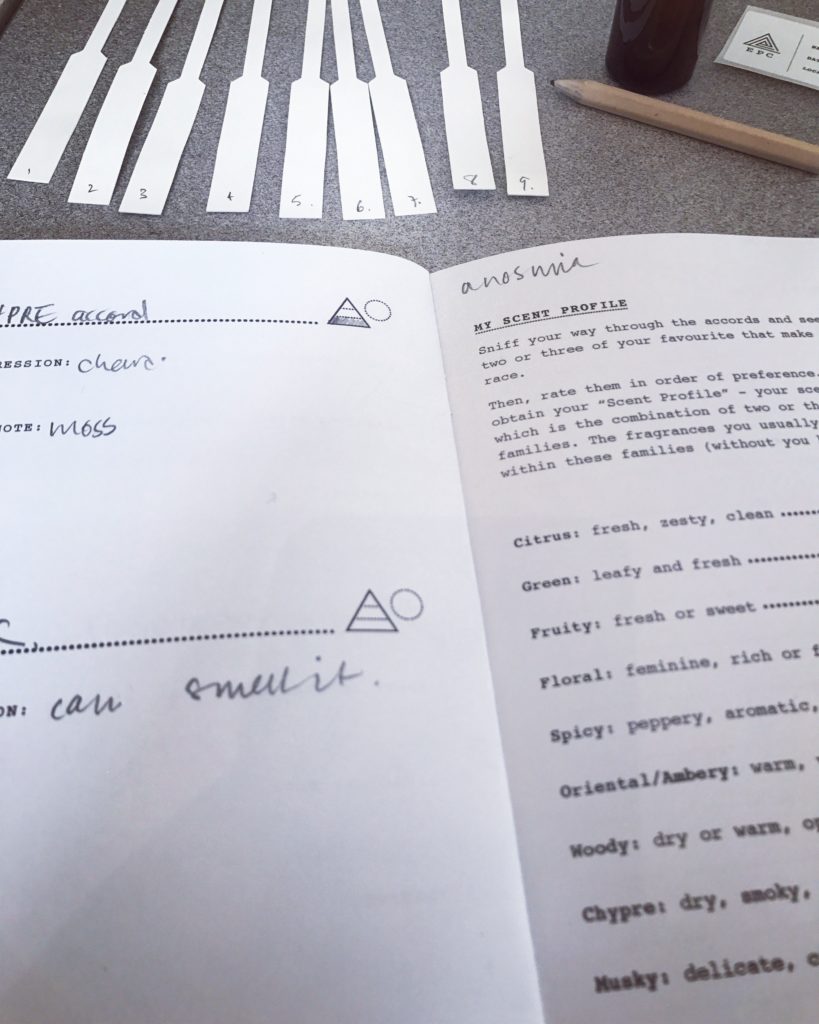 1
2
3
4
5.
6.
7.
8
9.
EPC
YPRE accord
RESSION:
NOTE: moss
ON: can smell it.
anosmia
MY SCENT PROFILE
Sniff your way through the accords and see
two or three of your favourite that make
race.
Then, rate them in order of preference.
obtain your “Scent Profile” – your sce
which is the combination of two or th
families. The fragrances you usually
within these families (without you
Citrus: fresh, zesty, clean
Green: leafy and fresh
Fruity: fresh or sweet
Floral: feminine, rich or f
Spicy: peppery, aromatic,
Oriental/Ambery: warm,
Woody: dry or warm, op
Chypre: dry, smoky,
Musky: delicate, c